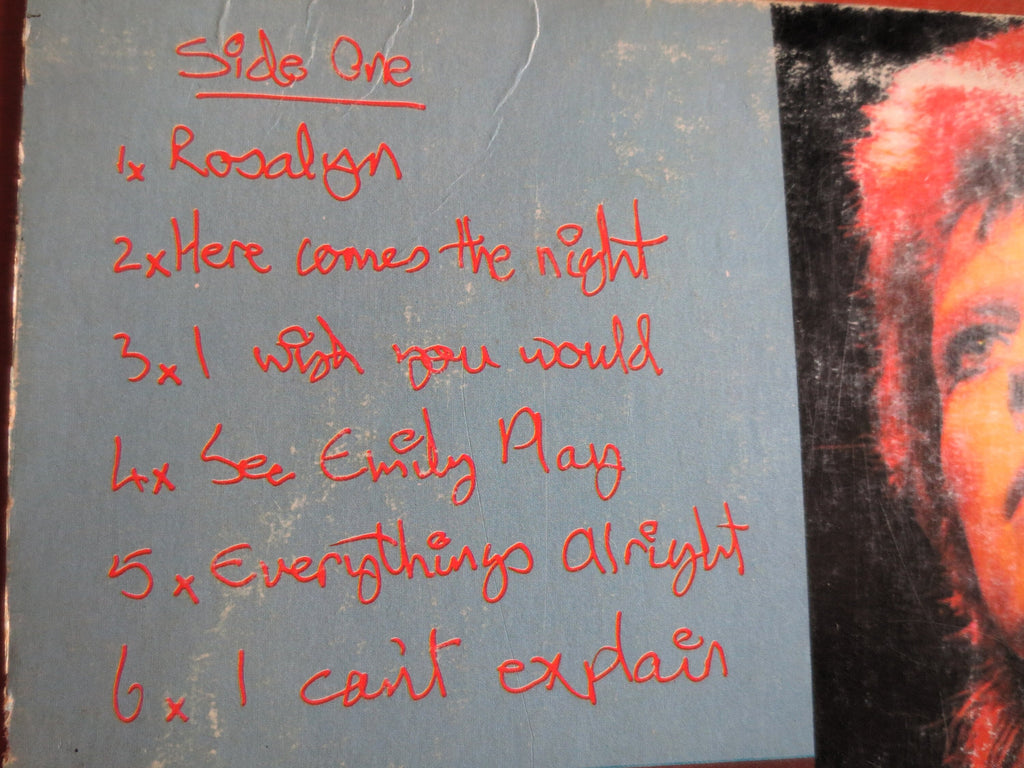 Side One
1x Rosalyn
2x Here comes the night
3x I wish you would
4x See Emily Play
5x Everythings Alright
6x I can't explain